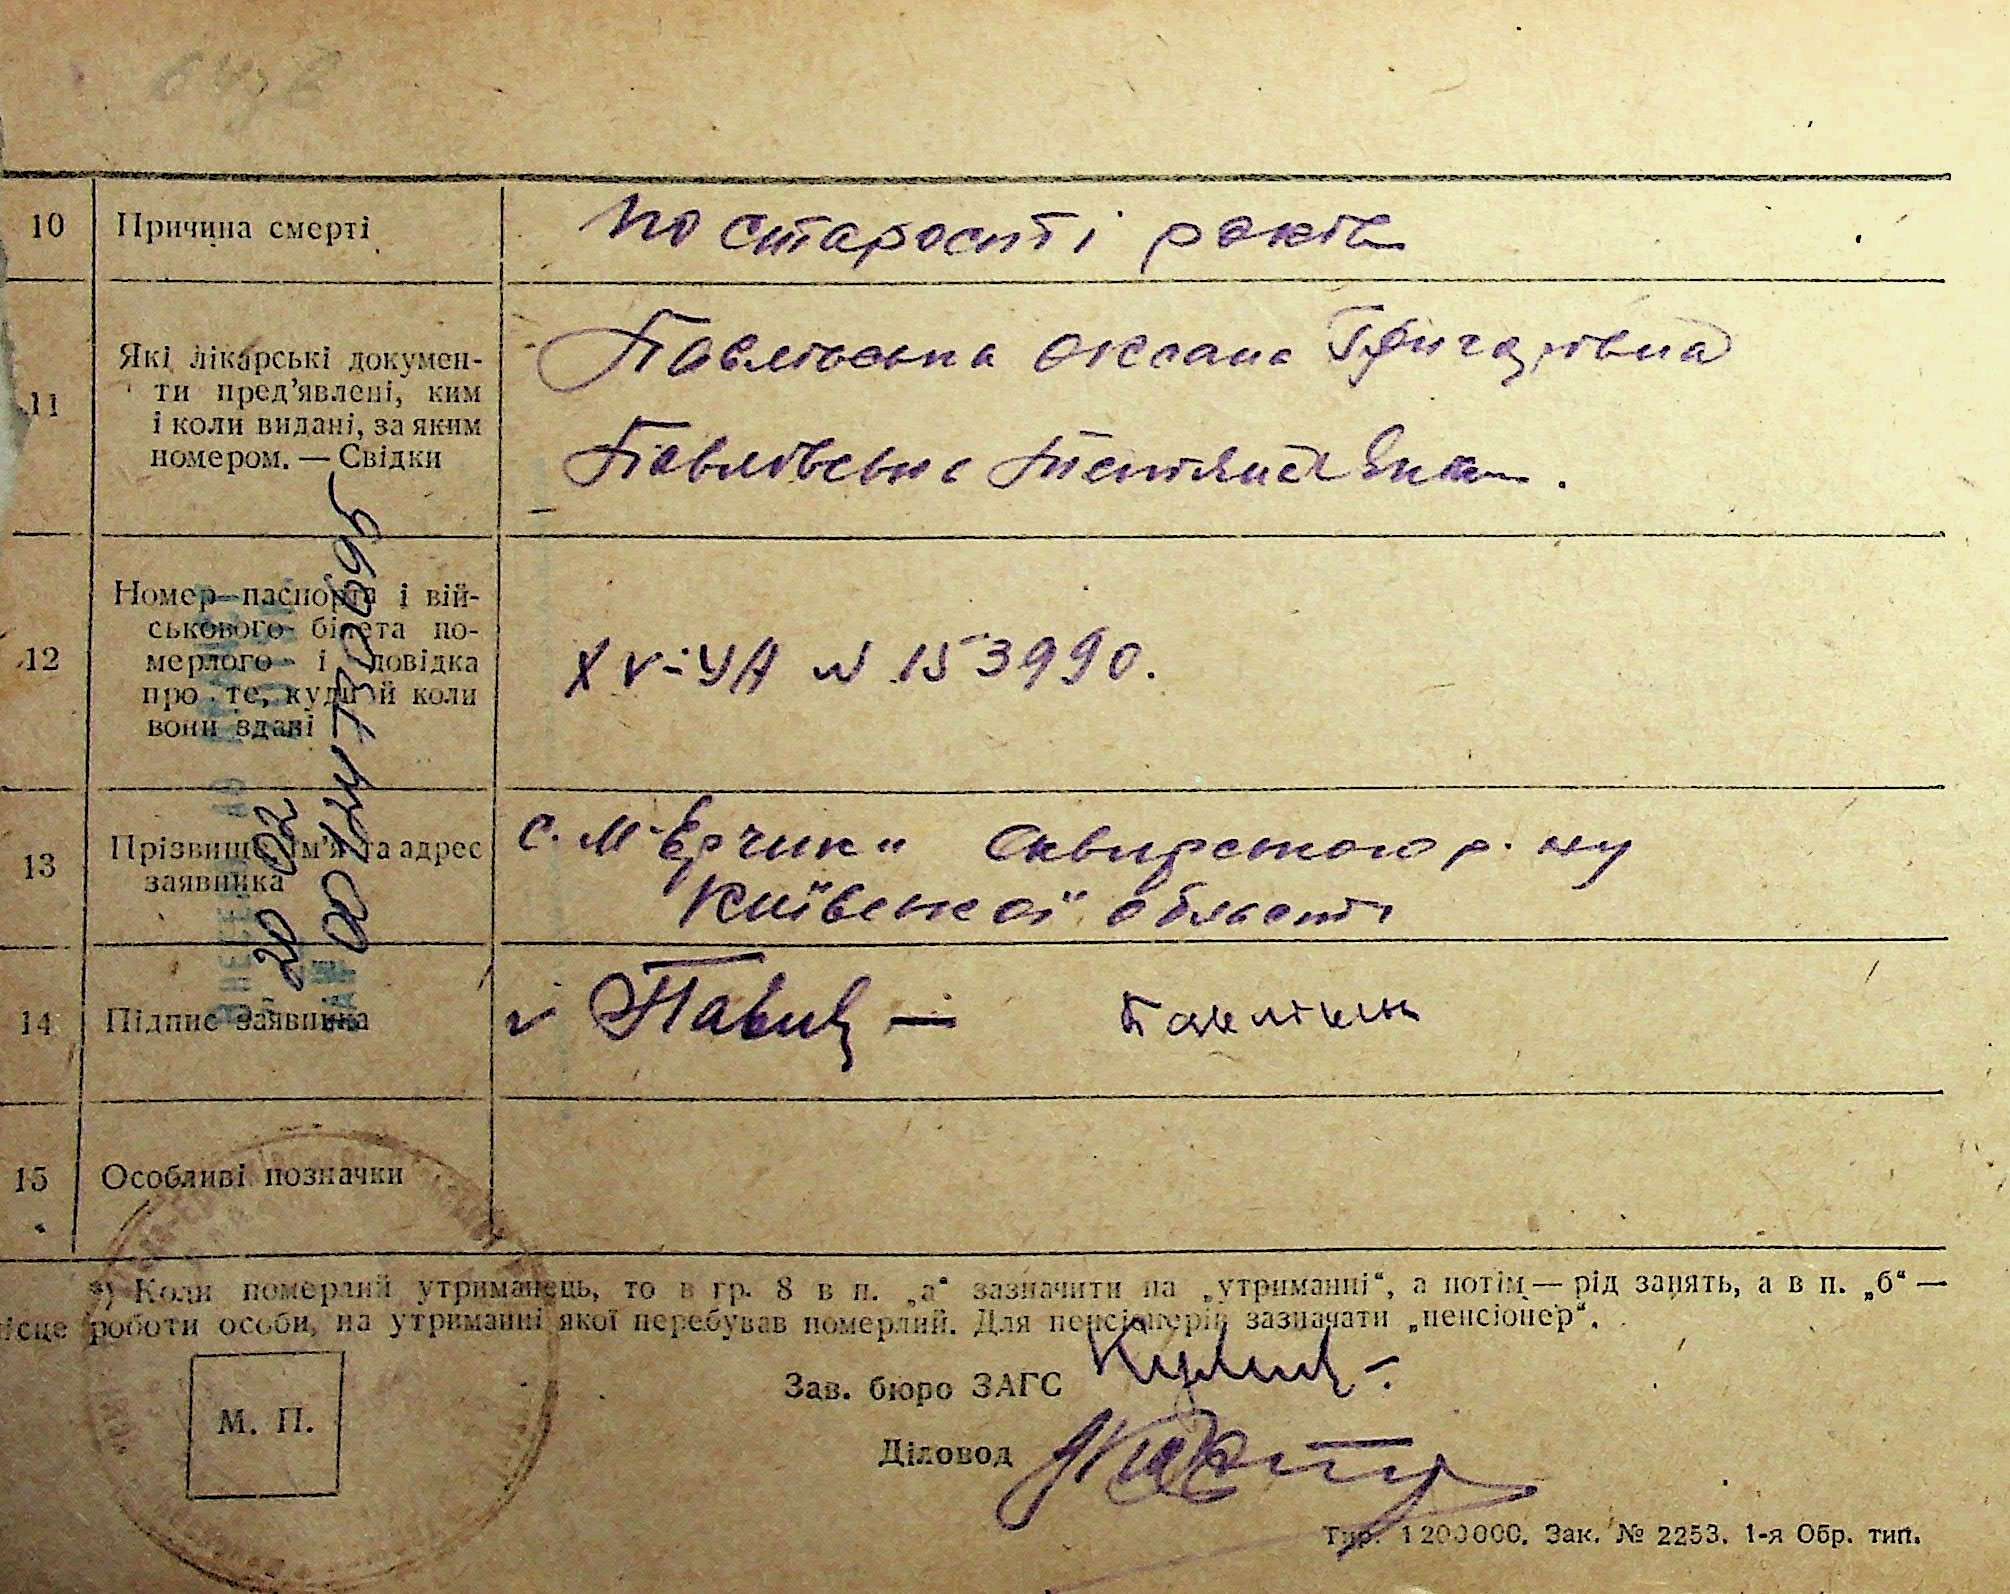 10 Причина смерті
по старості років
11 Які лікарські докумен-
ти пред’явлені, ким
і коли видані, за яким
номером. — Свідки
Павлівська Оксана Григорівна
Павлівська
12 Номер паспорта і вій-
ськового білета по-
мерлого і довідка
про те, куди й коли
вони здані
XV-УА N 153990.
13 Прізвище, ім’я та адрес
заявника
с. М-Єрчики Сквирського р-ну
Київської області
14 Підпис заявника
15 Особливі позначки
*) Коли померлий утриманець, то в гр. 8 в п. „а“ зазначити на „утриманні“, а потім — рід занять, а в п. „б“ —
місце роботи особи, на утриманні якої перебував померлий. Для пенсіонерів зазначати „пенсіонер“.
Зав. бюро ЗАГС
М. П.
Діловод
Тир. 1200000. Зак. № 2253. 1-я Обр. тип.
20 02
00144730695